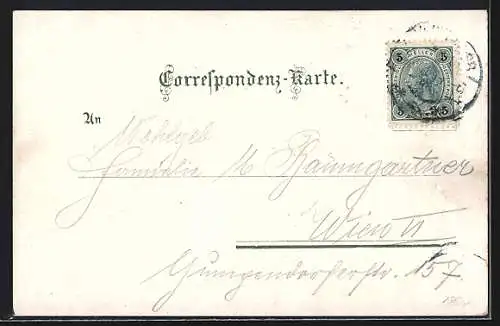 Correspondenz-Karte.
5 5
5 5
An
Wohlgeb
Familie M Baumgartner
Wien VI
Gumpendorferstr. 157